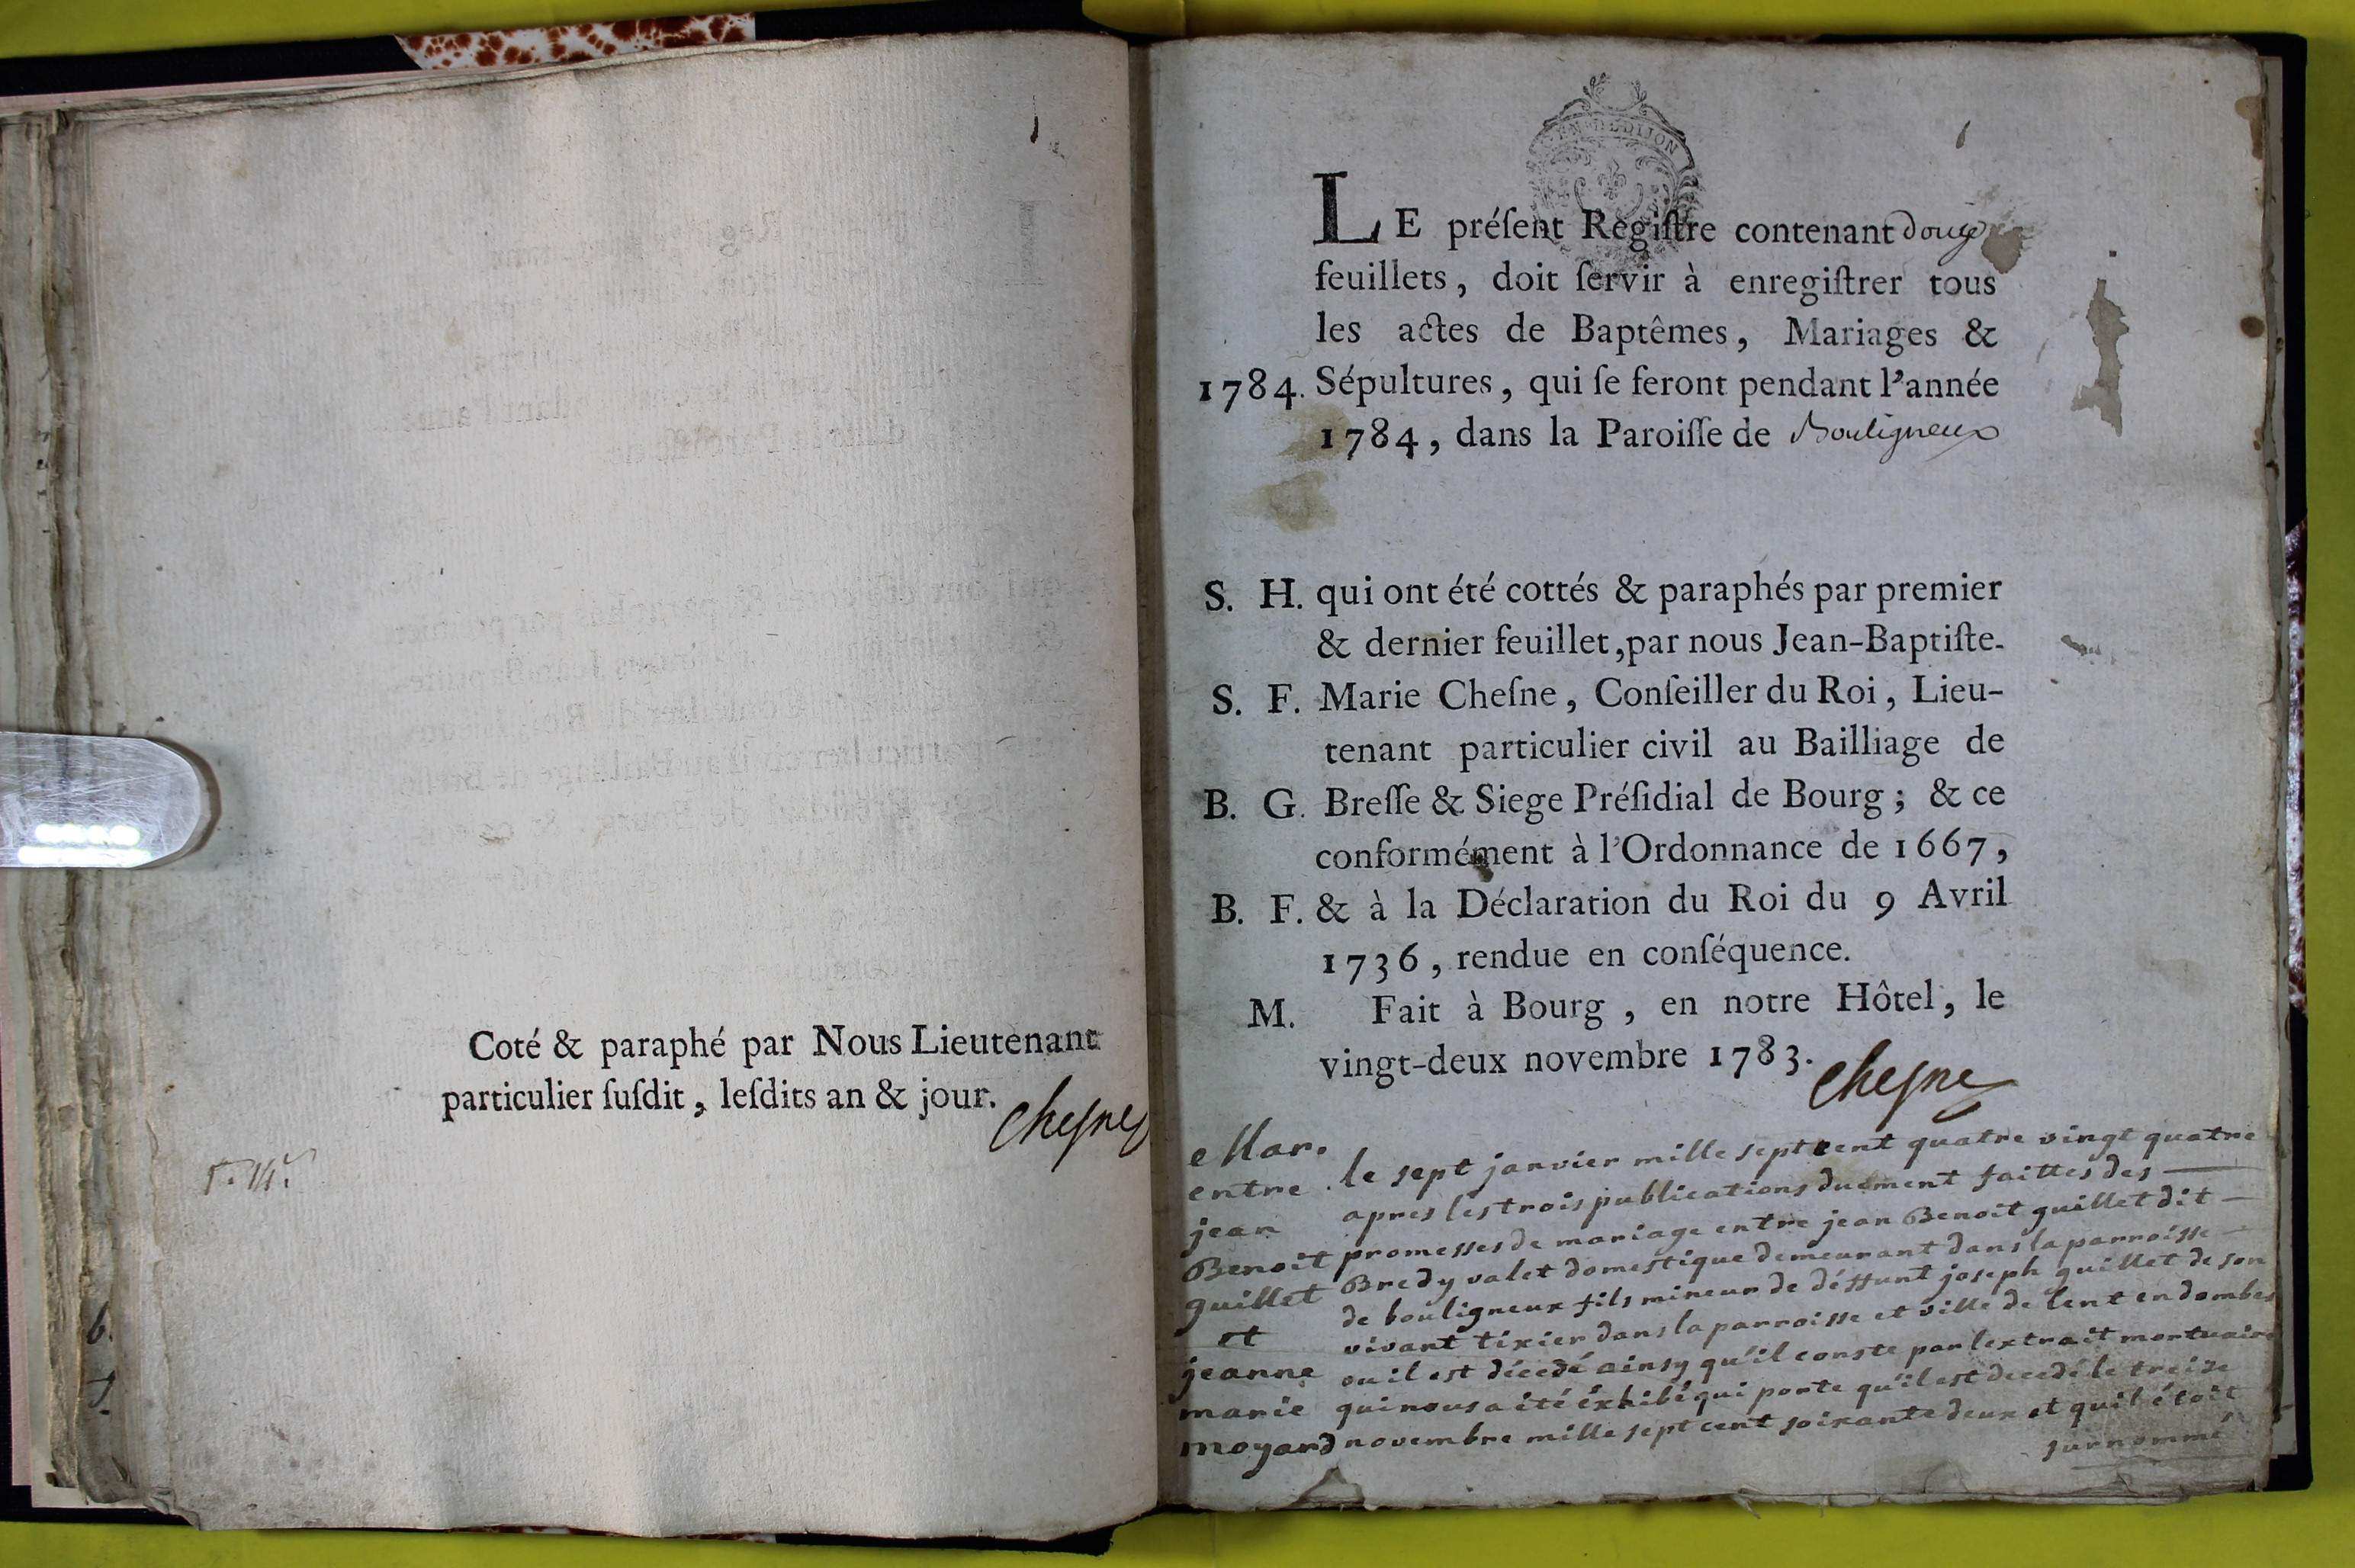 1
Coté & paraphé par Nous Lieutenant
particulier ſuſdit, leſdits an & jour.
Cheſne
6.
1
GEN DE DIJON
LE préſent Regiſtre contenant douze
feuillets, doit ſervir à enregiſtrer tous
les actes de Baptêmes, Mariages &
1784. Sépultures, qui ſe feront pendant l'année
1784, dans la Paroiſſe de Bouligneux
S. H. qui ont été cottés & paraphés par premier
& dernier feuillet, par nous Jean-Baptiſte-
S. F. Marie Cheſne, Conſeiller du Roi, Lieu-
tenant particulier civil au Bailliage de
B. G. Breſſe & Siege Préſidial de Bourg; & ce
conformément à l'Ordonnance de 1667,
B. F. & à la Déclaration du Roi du 9 Avril
1736, rendue en conſéquence.
M. Fait à Bourg, en notre Hôtel, le
vingt-deux novembre 1783.
Cheſne
Mar.
entre
jean
Benoit
guillet
et
jeanne
marie
moyard
le sept janvier mille sept cent quatre vingt quatre
apres les trois publications duëment faittes des
promesses de mariage entre jean Benoit guillet dit
Bredy valet domestique demeurant dans la parroisse
de bouligneux fils mineur de déffunt joseph guillet de son
vivant tixier dans la parroisse et ville de lent en dombes
ou il est décedé ainsy qu'il conste par lextrait mortuaire
qui nous a été éxhibé qui porte qu'il est decedé le treize
novembre mille sept cent soixante deux et quil étoit
surnommé